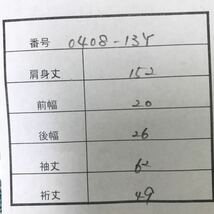 番号 0408-135
肩身丈 152
前幅 20
後幅 26
袖丈 62
裄丈 49